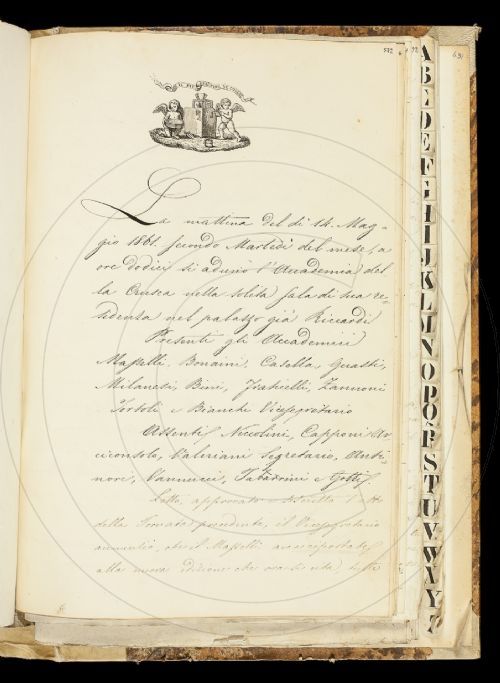 512
La mattina del dì 14. Mag-
gio 1861. secondo Martedì del mese, a
ore dodici si adunò l'Accademia del
la Crusca nella solita sala di sua re-
sidenza nel palazzo già Riccardi
Presenti gli Accademici
Masselli, Bonaini, Casella, Guasti,
Milanesi, Bini, Fraticelli, Zannoni
Tortoli e Bianchi Vicesegretario
Assenti Niccolini, Capponi Ar
ciconsolo, Valeriani Segretario, Anti
nori, Vannucci, Tabarrini e Gotti
Letto, approvato l'atto
della Tornata precedente, il Vicesegretario
annunziò, che il Masselli
alla nuova edizione che ora si
A
B
C
D
E
F
G
H
I
J
K
L
M
N
O
P
Q
R
S
T
U
V
W
X
Y
Z